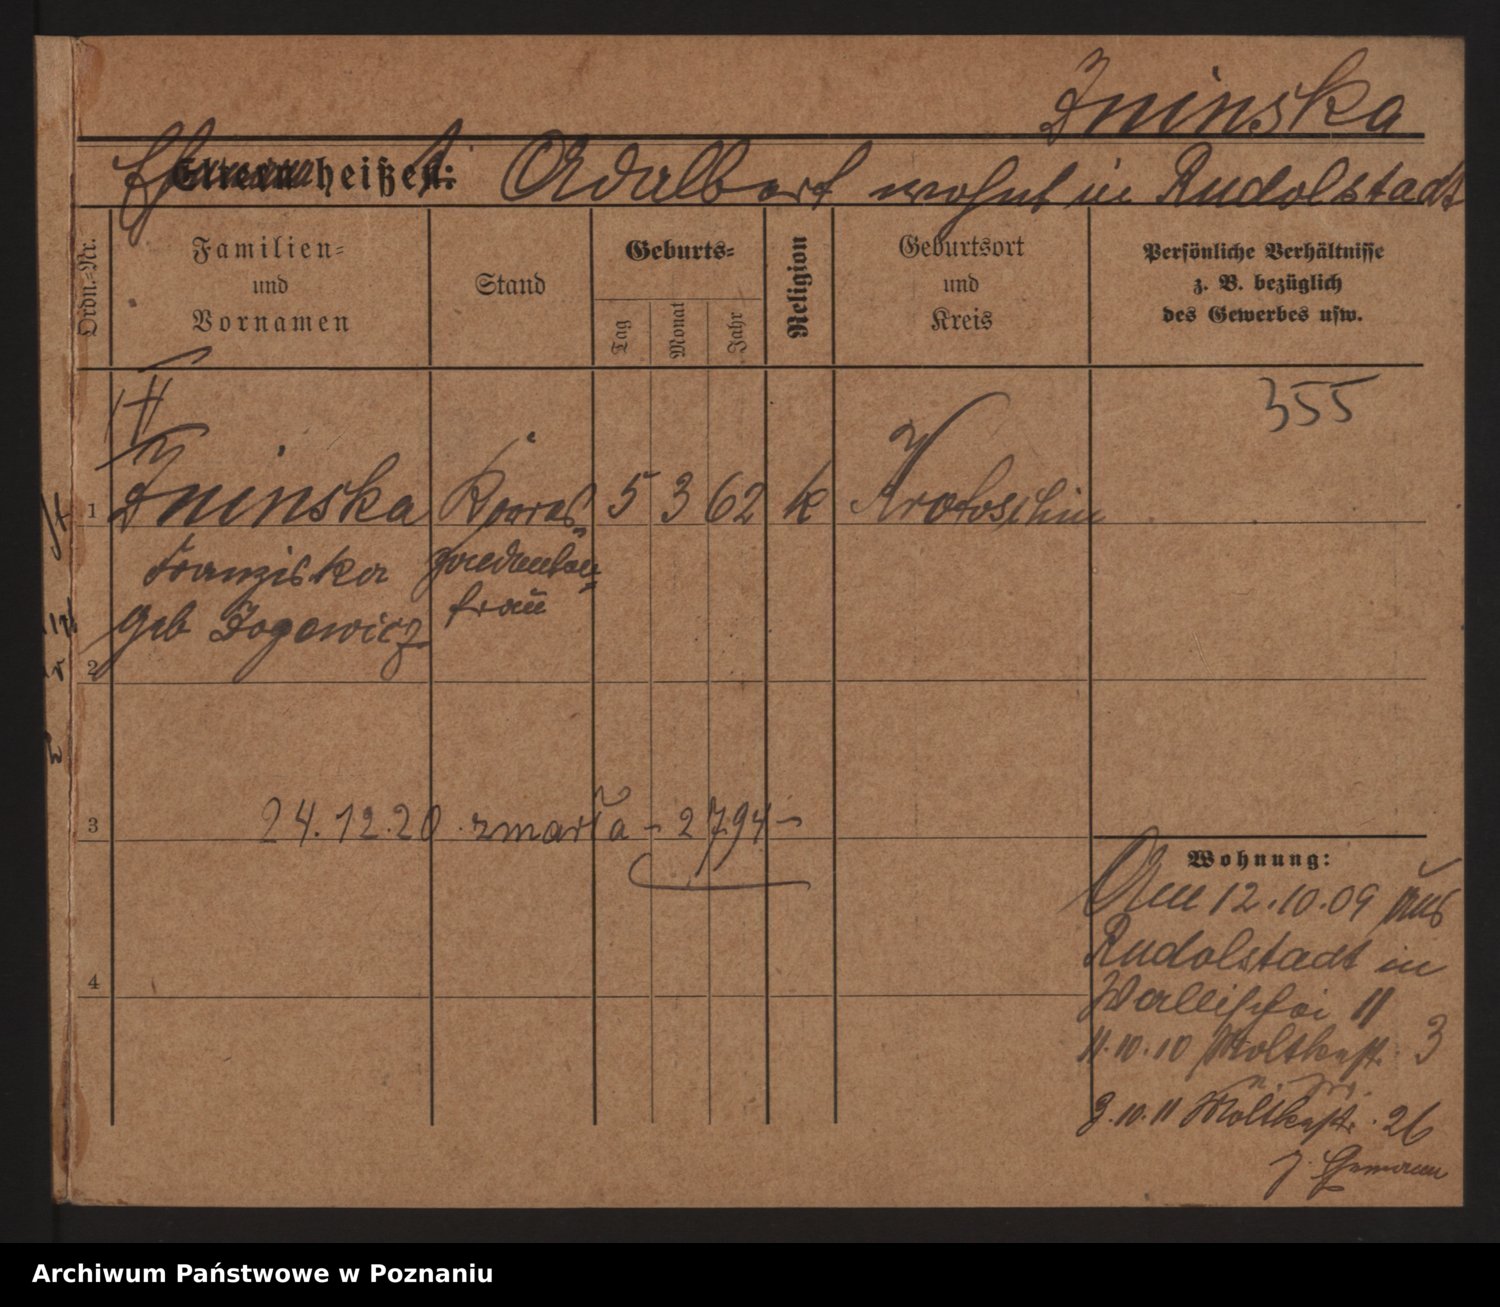 Zninska
Ehemann heißt: Adalbert wohnt in Rudolstadt
Ordn.-Nr.
Familien-
und
Vornamen
Stand
Geburts-
Tag
Monat
Jahr
Religion
Geburtsort
und
Kreis
Persönliche Verhältnisse
z. B. bezüglich
des Gewerbes usw.
355
1 Zninska 5 3 62 k Krotoschin
Franziska
frau
geb
2
3 24.12.20 zmarła - 2794 -
Wohnung:
Am 12.10.09 aus
Rudolstadt in
Wallischei 11
4
11.10.10 Moltkestr. 3
3.10.11 Moltkestr. 26
z. Ehemann
Archiwum Państwowe w Poznaniu